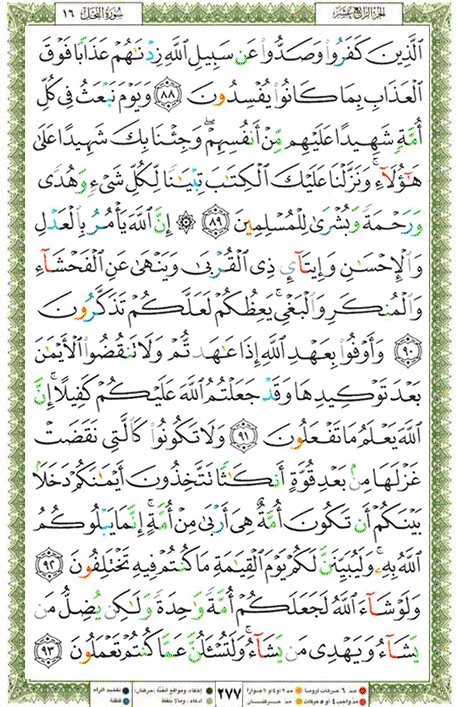 سُورَةُ النَّحْلِ ١٦
الجزء الرابع عشر
الَّذِينَ كَفَرُوا وَصَدُّوا عَن سَبِيلِ اللَّهِ زِدْنَٰهُمْ عَذَابًا فَوْقَ
الْعَذَابِ بِمَا كَانُوا يُفْسِدُونَ ٨٨ وَيَوْمَ نَبْعَثُ فِى كُلِّ
أُمَّةٍ شَهِيدًا عَلَيْهِم مِّنْ أَنفُسِهِمْ ۖ وَجِئْنَا بِكَ شَهِيدًا عَلَىٰ
هَٰؤُلَاءِ ۚ وَنَزَّلْنَا عَلَيْكَ الْكِتَٰبَ تِبْيَٰنًا لِّكُلِّ شَىْءٍ وَهُدًى
وَرَحْمَةً وَبُشْرَىٰ لِلْمُسْلِمِينَ ٨٩ ۞ إِنَّ اللَّهَ يَأْمُرُ بِالْعَدْلِ
وَالْإِحْسَٰنِ وَإِيتَآئِ ذِى الْقُرْبَىٰ وَيَنْهَىٰ عَنِ الْفَحْشَآءِ
وَالْمُنكَرِ وَالْبَغْىِ ۚ يَعِظُكُمْ لَعَلَّكُمْ تَذَكَّرُونَ
٩٠ وَأَوْفُوا بِعَهْدِ اللَّهِ إِذَا عَٰهَدتُّمْ وَلَا تَنقُضُوا الْأَيْمَٰنَ
بَعْدَ تَوْكِيدِهَا وَقَدْ جَعَلْتُمُ اللَّهَ عَلَيْكُمْ كَفِيلًا ۚ إِنَّ
اللَّهَ يَعْلَمُ مَا تَفْعَلُونَ ٩١ وَلَا تَكُونُوا كَالَّتِى نَقَضَتْ
غَزْلَهَا مِن بَعْدِ قُوَّةٍ أَنكَٰثًا تَتَّخِذُونَ أَيْمَٰنَكُمْ دَخَلًا
بَيْنَكُمْ أَن تَكُونَ أُمَّةٌ هِىَ أَرْبَىٰ مِنْ أُمَّةٍ ۚ إِنَّمَا يَبْلُوكُمُ
اللَّهُ بِهِ ۚ وَلَيُبَيِّنَنَّ لَكُمْ يَوْمَ الْقِيَٰمَةِ مَا كُنتُمْ فِيهِ تَخْتَلِفُونَ ٩٢
وَلَوْ شَآءَ اللَّهُ لَجَعَلَكُمْ أُمَّةً وَٰحِدَةً وَلَٰكِن يُضِلُّ مَن
يَشَآءُ وَيَهْدِى مَن يَشَآءُ ۚ وَلَتُسْـَٔلُنَّ عَمَّا كُنتُمْ تَعْمَلُونَ ٩٣
٢٧٧